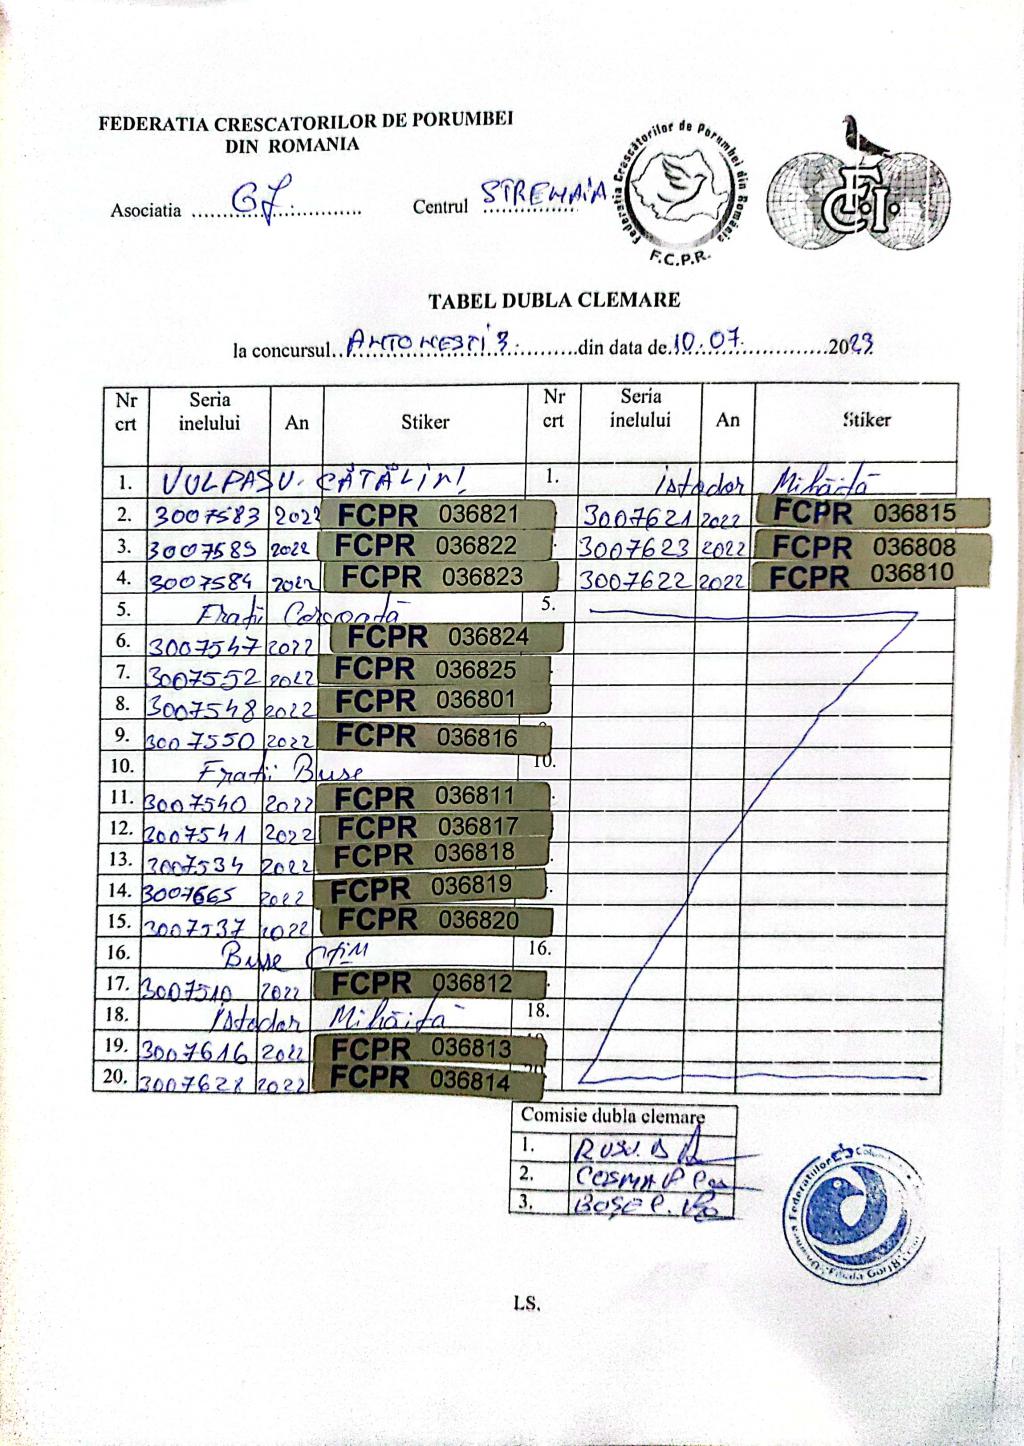 FEDERATIA CRESCATORILOR DE PORUMBEI
DIN ROMANIA
Asociatia ..........GJ.......... Centrul STREHAIA
Federatia Crescătorilor de Porumbei din România
F.C.P.R.
F.C.I.
TABEL DUBLA CLEMARE
la concursul..ANTONESTI 3...........din data de.10.07................2023
Nr crt Seria inelului An Stiker Nr crt Seria inelului An Stiker
1. VULPASU. CĂTĂLIN! 1. istodor Mihăiță
2. 3007583 2022 FCPR 036821 3007621 2022 FCPR 036815
3. 3007585 2022 FCPR 036822 3007623 2022 FCPR 036808
4. 3007584 2022 FCPR 036823 3007622 2022 FCPR 036810
5. Frații 5.
6. 3007547 2022 FCPR 036824
7. 3007552 2022 FCPR 036825
8. 3007548 2022 FCPR 036801
9. 3007550 2022 FCPR 036816
10. Frații Buse 10.
11. 3007540 2022 FCPR 036811
12. 3007541 2022 FCPR 036817
13. 3007534 2022 FCPR 036818
14. 3007665 2022 FCPR 036819
15. 3007537 2022 FCPR 036820
16. Buse 16.
17. 3007510 2022 FCPR 036812
18. istodor Mihăiță 18.
19. 3007616 2022 FCPR 036813
20. 3007628 2022 FCPR 036814
Comisie dubla clemare
1. RUSU. D
2. COSMA P
3. BOȘE C.
LS.